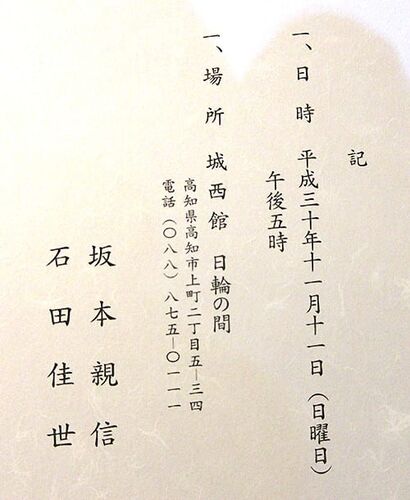 記
一、日時 平成三十年十一月十一日(日曜日)
午後五時
一、場所 城西館 日輪の間
高知県高知市上町二丁目五―三四
電話(〇八八)八七五―〇一一一
坂本親信
石田佳世